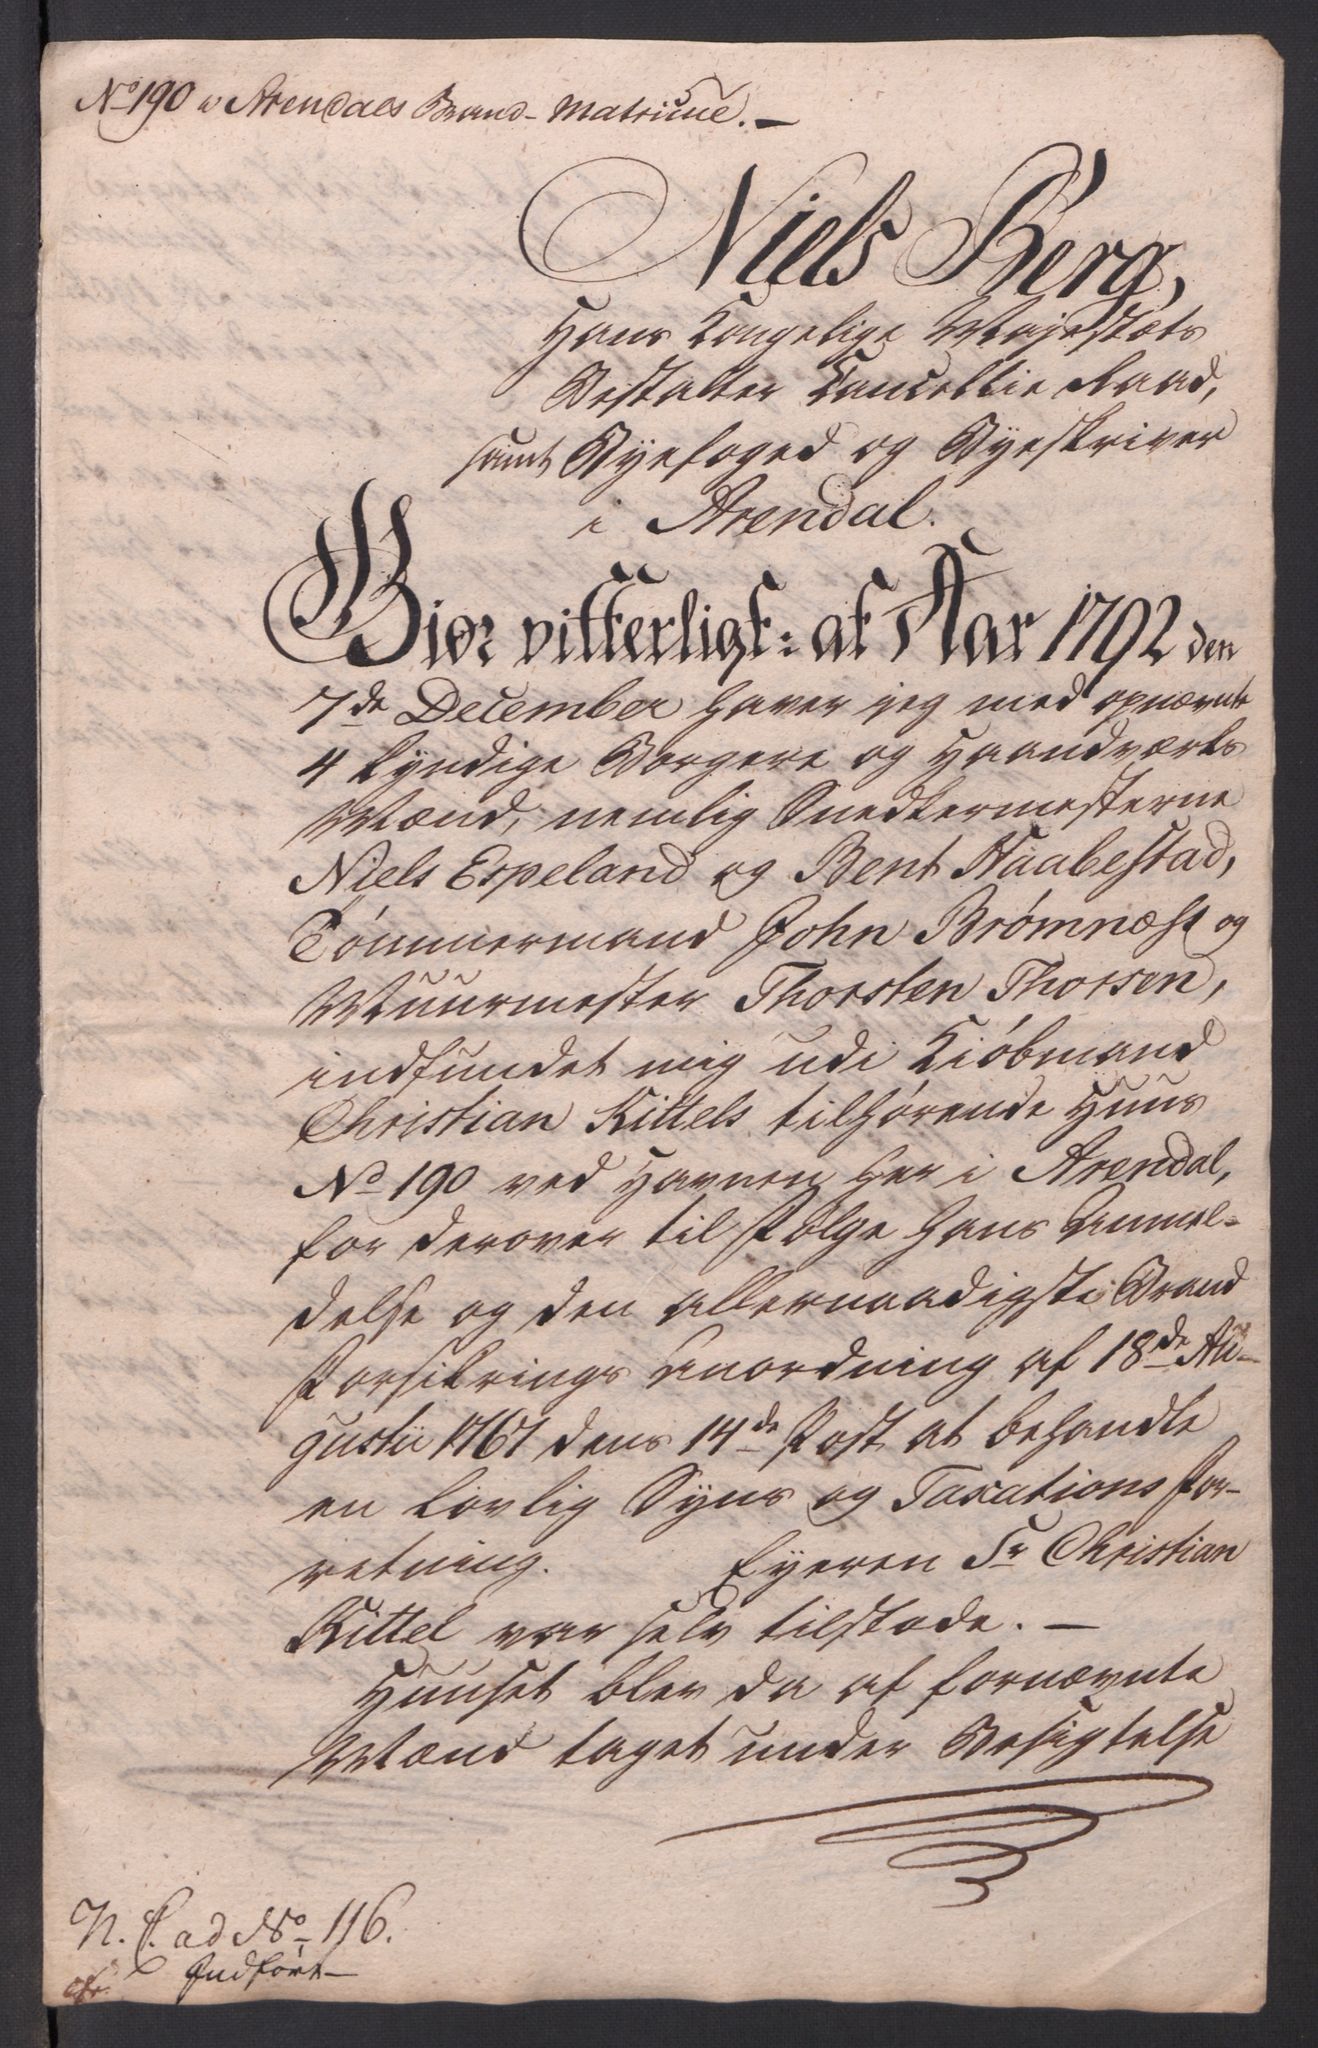 No 190 i Arendals Brand-Matricul.
Niels Berg,
Hans Kongelige Majestæts
Bestalter Cancellie Raad,
samt Byefoged og Byeskriver
i Arendal.
Giør vitterligt: at Aar 1792 den
7de December haver jeg med opnævnte
4 kyndige Borgere og Haandværks
Mænd, nemlig Snedkermesterne
Niels Espeland og Bent Haabestad,
Tömmermand John Brömnæss og
Muurmester Thorsten Thorsen,
indfundet mig udi Kiöbmand
Christian Kittels tilhörende Huus
No 190 ved Havnen her i Arendal,
for derover til Følge hans Anmel-
delse og den allernaadigste Brand
Forsikrings Anordning af 18de Au-
gustii 1767 dens 14de Post at behandle
en lovlig Syns og Taxations For-
retning. Eyeren Sr Christian
Kittel var selv tilstæde.
Huuset blev da af fornævnte
Mænd taget under Besigtelse
N. C. ad No 116.
Indført